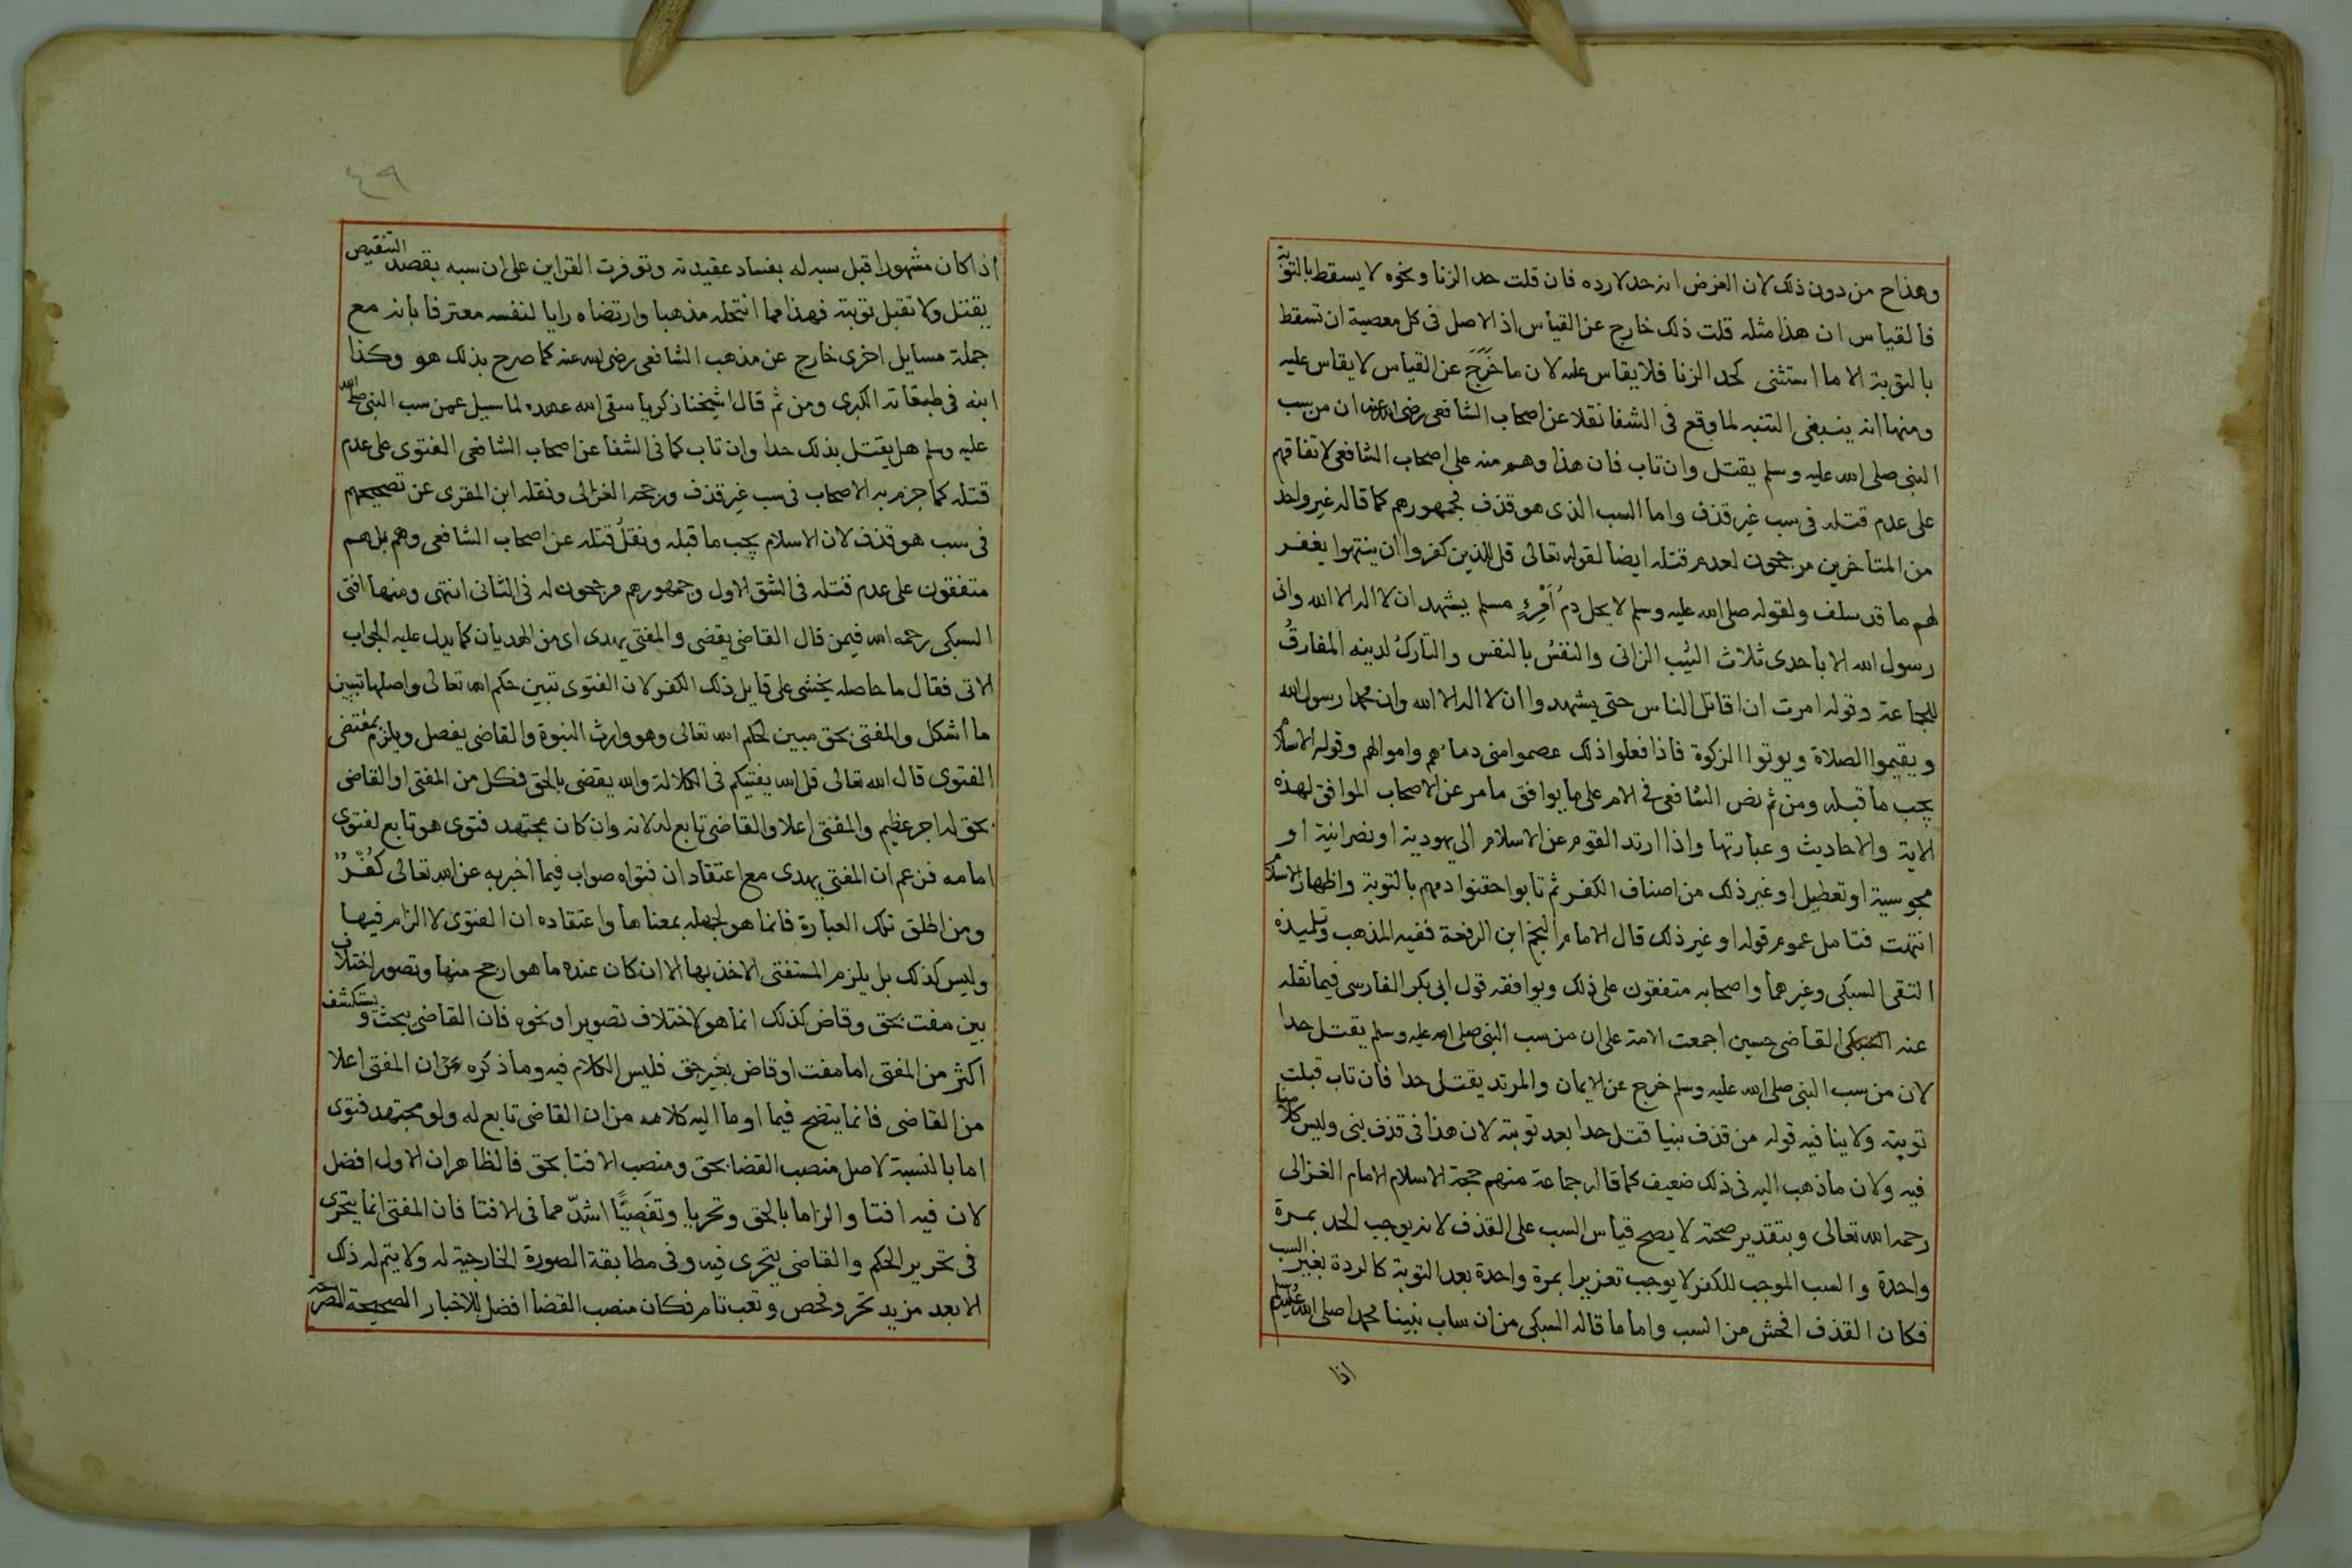 وهذاح من دون ذلك لان الغرض انه حد لارده فان قلت حد الزنا ونحوه لا يسقط بالتوبة
فالقياس ان هذا مثله قلت ذلك خارج عن القياس اذ الاصل فى كل معصية ان تسقط
بالتوبة الا ما استثنى كحد الزنا فلا يقاس عليه لان ما خَرَجَ عن القياس لا يقاس عليه
ومنها انه ينبغى التنبه لما وقع فى الشفا نقلا عن اصحاب الشافعى رضى الله عنه ان من سب
النبى صلى الله عليه وسلم يقتل وان تاب فان هذا وهم منه على اصحاب الشافعى لاتفاقهم
على عدم قتله فى سب غير قذف واما السب الذى هو قذف فجمهورهم كما قاله غير واحد
من المتاخرين مرجحون لعدم قتله ايضا لقوله تعالى قل للذين كفروا ان ينتهوا يغفر
لهم ما قد سلف ولقوله صلى الله عليه وسلم لا يحل دمُ اَمْرِئٍ مسلم يشهد ان لا اله الا الله وانى
رسول الله الا باحدى ثلاث الثيّب الزانى والنفسُ بالنفس والتاركُ لدينه المفارقُ
للجماعة وقوله امرت ان اقاتل الناس حتى يشهدوا ان لا اله الا الله وان محمدا رسول الله
ويقيموا الصلاة ويوتوا الزكوة فاذا فعلوا ذلك عصموا منى دماءهم واموالهم وقوله الاسلام
يجب ما قبله ومن ثم نص الشافعى فى الام على ما يوافق ما مر عن الاصحاب الموافق لهذه
الاية والاحاديث وعبارتها واذا ارتد القوم عن الاسلام الى يهودية او نصرانية او
مجوسية او تعطيل او غير ذلك من اصناف الكفر ثم تابوا حقنوا دمهم بالتوبة واظهار الاسلام
انتهت فتامل عموم قوله او غير ذلك قال الامام النجم ابن الرفعة فقيه المذهب وتلميذه
التقى السبكى وغيرهما واصحابه متفقون على ذلك ويوافقه قول ابى بكر الفارسى فيما نقله
عنه القاضى حسين اجمعت الامة على ان من سب النبى صلى الله عليه وسلم يقتل حدا
لان من سب النبى صلى الله عليه وسلم خرج عن الايمان والمرتد يقتل حدا فان تاب قبلت
توبته ولا ينافيه قوله من قذف نبيا قتل حدا بعد توبته لان هذا فى قذف نبى وليس كلامنا
فيه ولان ما ذهب اليه فى ذلك ضعيف كما قاله جماعة منهم حجة الاسلام الامام الغزالى
رحمه الله تعالى وبتقدير صحته لا يصح قياس السب على القذف لانه يوجب الحد بمرة
واحدة والسب الموجب للكفر لا يوجب تعزيرا بمرة واحدة بعد التوبة كالردة بغير السب
فكان القذف افحش من السب واما ما قاله السبكى من ان ساب نبينا محمدا صلى الله عليه وسلم
اذا
٤٩
اذا كان مشهورا قبل سبه له بفساد عقيدته وتوفرت القراين على ان سبه بقصد التنقيص
يقتل ولا تقبل توبته فهذا مما انتحله مذهبا وارتضاه رايا لنفسه معترفا بانه مع
جملة مسايل اخرى خارج عن مذهب الشافعى رضى الله عنه كما صرح بذلك هو وكذا
ابنه فى طبقاته الكبرى ومن ثم قال شيخنا زكريا سقى الله عهده لما سيل عمن سب النبى صلى الله
عليه وسلم هل يقتل بذلك حدا وان تاب كما فى الشفا عن اصحاب الشافعى الفتوى على عدم
قتله كما جزم به الاصحاب فى سب غير قذف ورجحه الغزالى ونقله ابن المقرى عن تصحيحهم
فى سب هو قذف لان الاسلام يجب ما قبله ونقلُ قتله عن اصحاب الشافعى وهم بل هم
متفقون على عدم قتله فى الشق الاول وجمهورهم مرجحون له فى الثانى انتهى ومنها افتى
السبكى رحمه الله فيمن قال القاضى يقضى والمفتى يهدى اى من الهديان كما يدل عليه الجواب
الاتى فقال ما حاصله يخشى على قايل ذلك الكفر لان الفتوى تبين حكم الله تعالى واصلها تبيين
ما اشكل والمفتى بحق مبين لحكم الله تعالى وهو وارث النبوة والقاضى يفصل ويلزم بمقتضى
الفتوى قال الله تعالى قل الله يفتيكم فى الكلالة والله يقضى بالحق فكل من المفتى او القاضى
بحق له اجر عظيم والمفتى اعلا والقاضى تابع له لانه وان كان مجتهد فتوى هو تابع لفتوى
امامه فزعم ان المفتى يهدى مع اعتقاد ان فتواه صواب فيما اخبر به عن الله تعالى كُفْرٌ
ومن اطلق تلك العبارة فانما هو لجهله بمعناها واعتقاده ان الفتوى لا الزام فيها
وليس كذلك بل يلزم المستفتى الاخذ بها الا ان كان عنده ما هو ارجح منها وتصور اختلاف
بين مفت بحق وقاض كذلك انما هو لاختلاف تصوير او نحوه فان القاضى يبحث ويستكشف
اكثر من المفتى اما مفت او قاض بغير حق فليس الكلام فيه وما ذكره من ان المفتى اعلا
من القاضى فانما يتضح فيما اوما اليه كلامه من ان القاضى تابع له ولو مجتهد فتوى
اما بالنسبة لاصل منصب القضا بحق ومنصب الافتا بحق فالظاهر ان الاول افضل
لان فيه افتا والزاما بالحق وتحريا وتفصيًّا اشدّ مما فى الافتا فان المفتى انما يتحرى
فى تحرير الحكم والقاضى يتحرى فيه وفى مطابقة الصورة الخارجية له ولا يتم له ذلك
الا بعد مزيد تحر وفحص وتعب تام فكان منصب القضا افضل للاخبار الصحيحة الصريحة